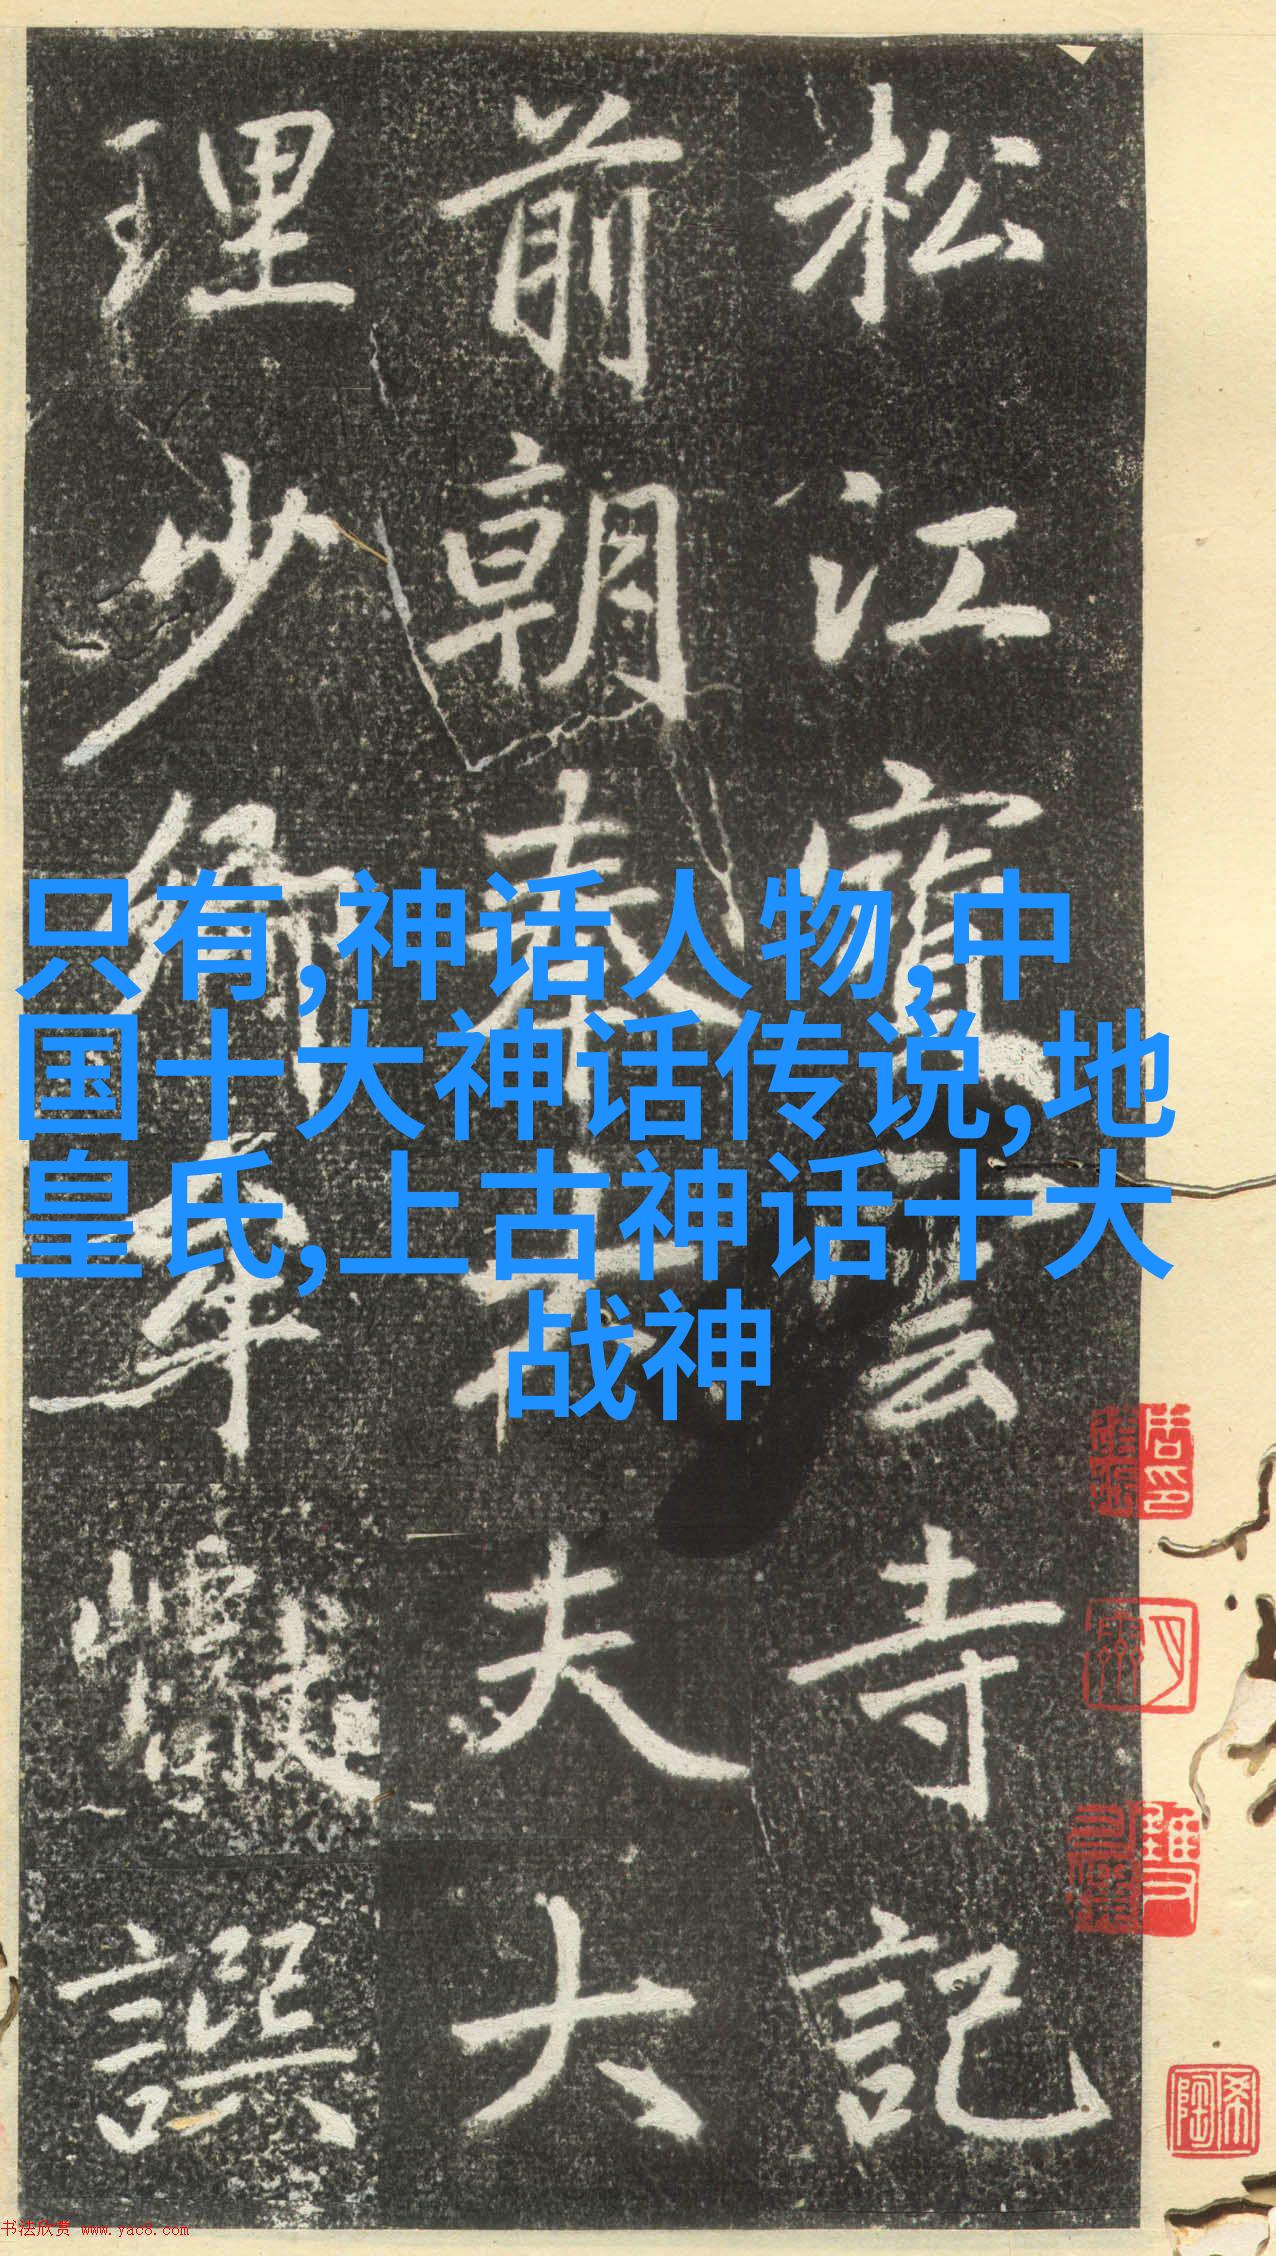 只有,神话人物,中
国十大神话传说,地
皇氏,上古神话十大
战神
松江寳云寺記
前朝奉大夫大
理少卿牟巘譔
书法欣赏 www.yac8.com